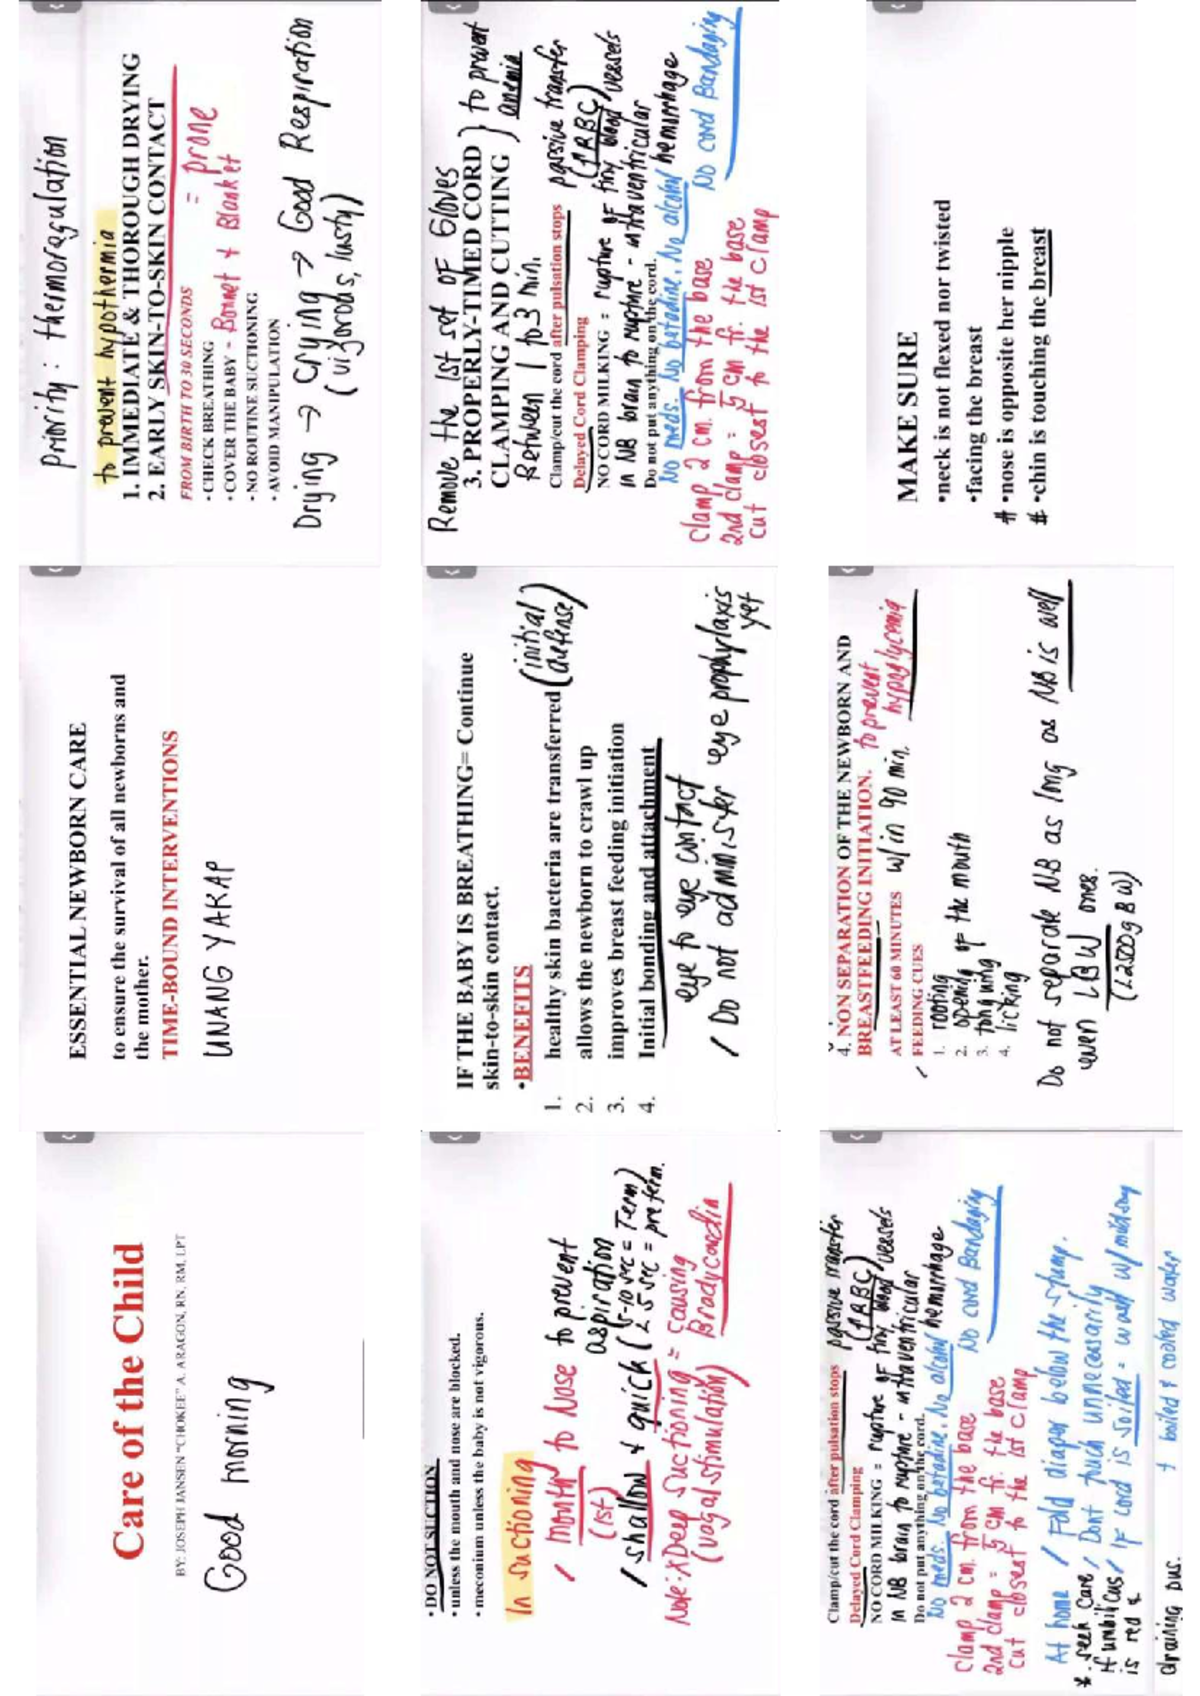 Care of the Child
BY: JOSEPH JANSEN "CHOKEE" A. ARAGON, RN, RM, LPT
Good morning
ESSENTIAL NEWBORN CARE
to ensure the survival of all newborns and
the mother.
TIME-BOUND INTERVENTIONS
UNANG YAKAP
Priority: thermoregulation
to prevent hypothermia
1. IMMEDIATE & THOROUGH DRYING
2. EARLY SKIN-TO-SKIN CONTACT
FROM BIRTH TO 30 SECONDS = prone
• CHECK BREATHING
• COVER THE BABY - Bonnet + Blanket
• NO ROUTINE SUCTIONING
• AVOID MANIPULATION
Drying → Crying → Good Respiration
(vigorous, lusty)
• DO NOT SUCTION
• unless the mouth and nose are blocked.
• meconium unless the baby is not vigorous.
In suctioning
/ mouth to Nose to prevent
(1st) aspiration
/ shallow & quick (5-10 sec = Term)
(<5 sec = preterm.
Note: x Deep Suctioning = causing
(vagal stimulation) Bradycardia
IF THE BABY IS BREATHING= Continue
skin-to-skin contact.
•BENEFITS
1. healthy skin bacteria are transferred (initial defense)
2. allows the newborn to crawl up
3. improves breast feeding initiation
4. Initial bonding and attachment
eye to eye contact
/ Do not administer eye prophylaxis
yet
Remove the 1st set of Gloves
3. PROPERLY-TIMED CORD ) to prevent
CLAMPING AND CUTTING ) anemia
Between 1 to 3 min.
Clamp/cut the cord after pulsation stops passive transfer
Delayed Cord Clamping (↑RBC)
NO CORD MILKING = rupture of tiny blood vessels
in NB brain to rupture - intraventricular
Do not put anything on the cord. hemorrhage
No meds. No betadine. No alcohol No cord Bandaging
Clamp 2 cm. from the base
2nd clamp = 5 cm fr. the base
cut closest to the 1st clamp
Clamp/cut the cord after pulsation stops passive transfer
Delayed Cord Clamping (↑RBC)
NO CORD MILKING = rupture of tiny blood vessels
in NB brain to rupture - intraventricular
Do not put anything on the cord. hemorrhage
No meds. No betadine. No alcohol No cord Bandaging
Clamp 2 cm. from the base
2nd clamp = 5 cm fr. the base
cut closest to the 1st clamp
At home / Fold diaper below the stump.
*. seek care / Dont touch unnecessarily
if umbilicus / IF cord is soiled = wash w/ mild soap
is red & + boiled & cooled water
draining pus.
4. NON SEPARATION OF THE NEWBORN AND
BREASTFEEDING INITIATION. to prevent
hypoglycemia
AT LEAST 60 MINUTES w/in 90 min.
/ FEEDING CUES
1. rooting
2. opening of the mouth
3. tonguing
4. licking
Do not separate NB as long as NB is well
even LBW ones.
(<2500g BW)
MAKE SURE
•neck is not flexed nor twisted
•facing the breast
# •nose is opposite her nipple
# •chin is touching the breast